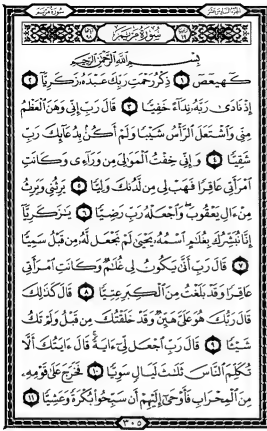 سورة مريم
الجزء السادس عشر
سورة مريم
بسم الله الرحمن الرحيم
كهيعص ١ ذكر رحمت ربك عبده زكريا ٢
إذ نادى ربه نداء خفيا ٣ قال رب إني وهن العظم
مني واشتعل الرأس شيبا ولم أكن بدعائك رب
شقيا ٤ وإني خفت الموالي من وراءي وكانت
امرأتي عاقرا فهب لي من لدنك وليا ٥ يرثني ويرث
من ءال يعقوب واجعله رب رضيا ٦ يزكريا
إنا نبشرك بغلم اسمه يحيى لم نجعل له من قبل سميا
٧ قال رب أنى يكون لي غلم وكانت امرأتي
عاقرا وقد بلغت من الكبر عتيا ٨ قال كذلك
قال ربك هو علي هين وقد خلقتك من قبل ولم تك
شيئا ٩ قال رب اجعل لي ءاية قال ءايتك ألا
تكلم الناس ثلث ليال سويا ١٠ فخرج على قومه
من المحراب فأوحى إليهم أن سبحوا بكرة وعشيا ١١
٣٠٥